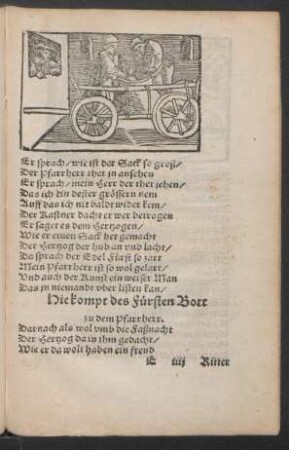 Er sprach/ wie ist der Sack so groß/
Der Pfarrherr thet jn ansehen
Er sprach/ mein Herr der ther jehen/
Das ich din dester grössern nem
Auff das ich nit baldt wider kem/
Der Kastner dacht er wer betrogen
Er saget es dem Hertzogen/
Wie er einen Sack het gemacht
Der Hertzog der hub an vnd lacht/
Da sprach der Edel Fürst so zart
Mein Pfarrherr ist so wol gelart/
Vnd auch der Kunst ein weiser Man
Das jn niemandt vber listen kan/
Hie kompt des Fürsten Bott
zu dem Pfarrherr.
Darnach als wol vmb die Faßnacht
Der Hertzog da in jhm gedacht/
Wie er da wolt haben ein freud
E iiij Ritter